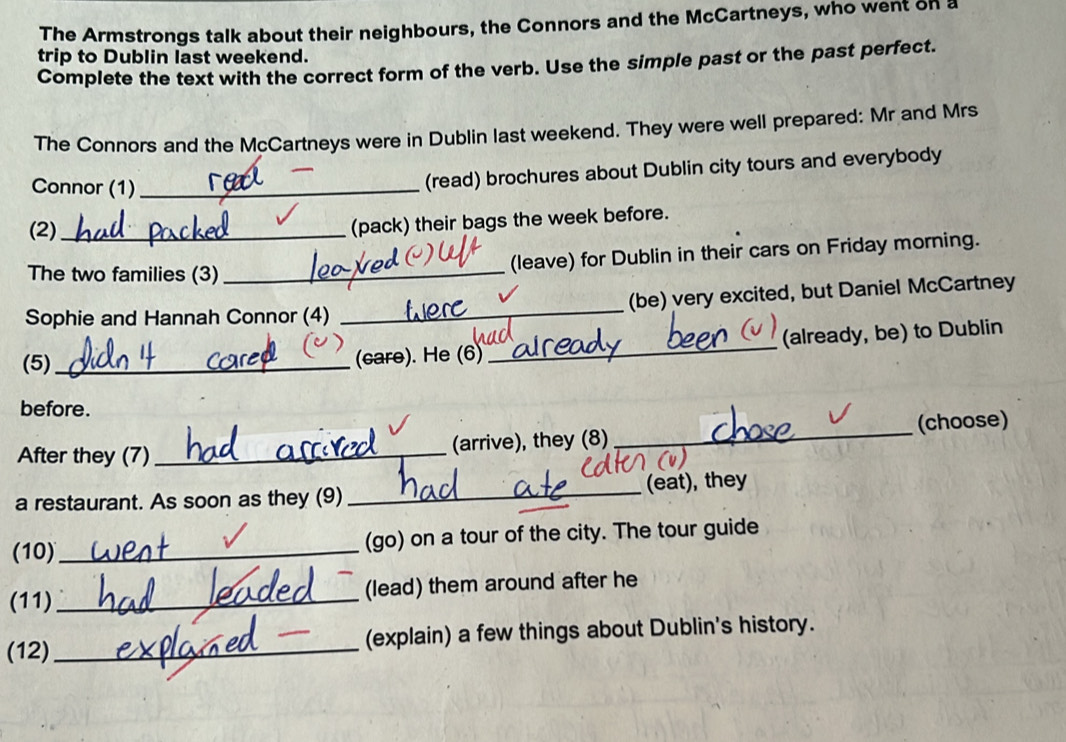 The Armstrongs talk about their neighbours, the Connors and the McCartneys, who went on a
trip to Dublin last weekend.
Complete the text with the correct form of the verb. Use the simple past or the past perfect.
The Connors and the McCartneys were in Dublin last weekend. They were well prepared: Mr and Mrs
Connor (1) read – (read) brochures about Dublin city tours and everybody
(2) had packed ✓ (pack) their bags the week before.
The two families (3) leaved (v) left (leave) for Dublin in their cars on Friday morning.
Sophie and Hannah Connor (4) were ✓ (be) very excited, but Daniel McCartney
(5) didn't cared (v) (care). He (6) had already been (v) (already, be) to Dublin
before.
After they (7) had arrived ✓ (arrive), they (8) chose ✓ (choose)
a restaurant. As soon as they (9) had ate eaten (v) (eat), they
(10) went ✓ (go) on a tour of the city. The tour guide
(11) had leaded – (lead) them around after he
(12) explained – (explain) a few things about Dublin's history.